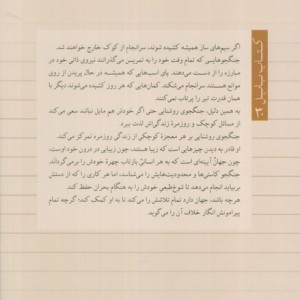 کتاب نیایش ۲
اگر سیم‌های ساز همیشه کشیده شوند، سرانجام از کوک خارج خواهند شد.
جنگجوهایی که تمام وقت خود را به تمرین می‌گذرانند نیروی ذاتی خود در
مبارزه را از دست می‌دهند. پای اسب‌هایی که همیشه در حال پریدن از روی
موانع هستند سرانجام می‌شکند. کمان‌هایی که هر روز کشیده می‌شوند دیگر با
همان قدرت تیر را پرتاب نمی‌کنند.
به همین دلیل، جنگجوی روشنایی حتی اگر خودش هم مایل نباشد سعی می‌کند
از مسائل کوچک و روزمرهٔ زندگی‌اش لذت ببرد.
جنگجوی روشنایی بر هر معجزهٔ کوچکی از زندگی روزمره تمرکز می‌کند.
او قادر به دیدن چیزهایی است که زیبا هستند، چون زیبایی در درون خود اوست،
چون جهان آیینه‌ای است که به هر انسانی بازتاب چهرهٔ خودش را برمی‌گرداند.
جنگجو کاستی‌ها و محدودیت‌هایش را می‌شناسد، اما هر کاری را که از دستش
بربیاید انجام می‌دهد تا شوخ‌طبعی خودش را به هنگام بحران حفظ کند.
هرچه باشد، جهان دارد تمام تلاشش را می‌کند تا به او کمک کند؛ گرچه تمام
پیرامونش انگار خلاف آن را می‌گوید.